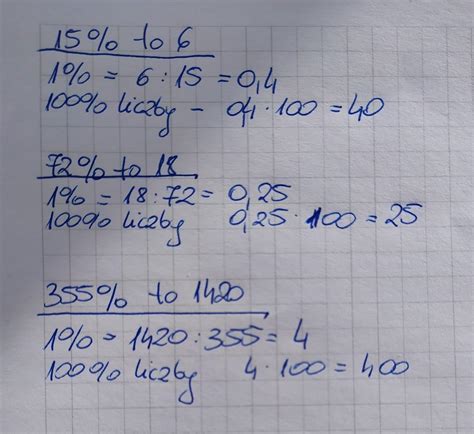 15% to 6
1% = 6 : 15 = 0,4
100% liczby - 0,4 · 100 = 40
72% to 18
1% = 18 : 72 = 0,25
100% liczby 0,25 · 100 = 25
355% to 1420
1% = 1420 : 355 = 4
100% liczby 4 · 100 = 400